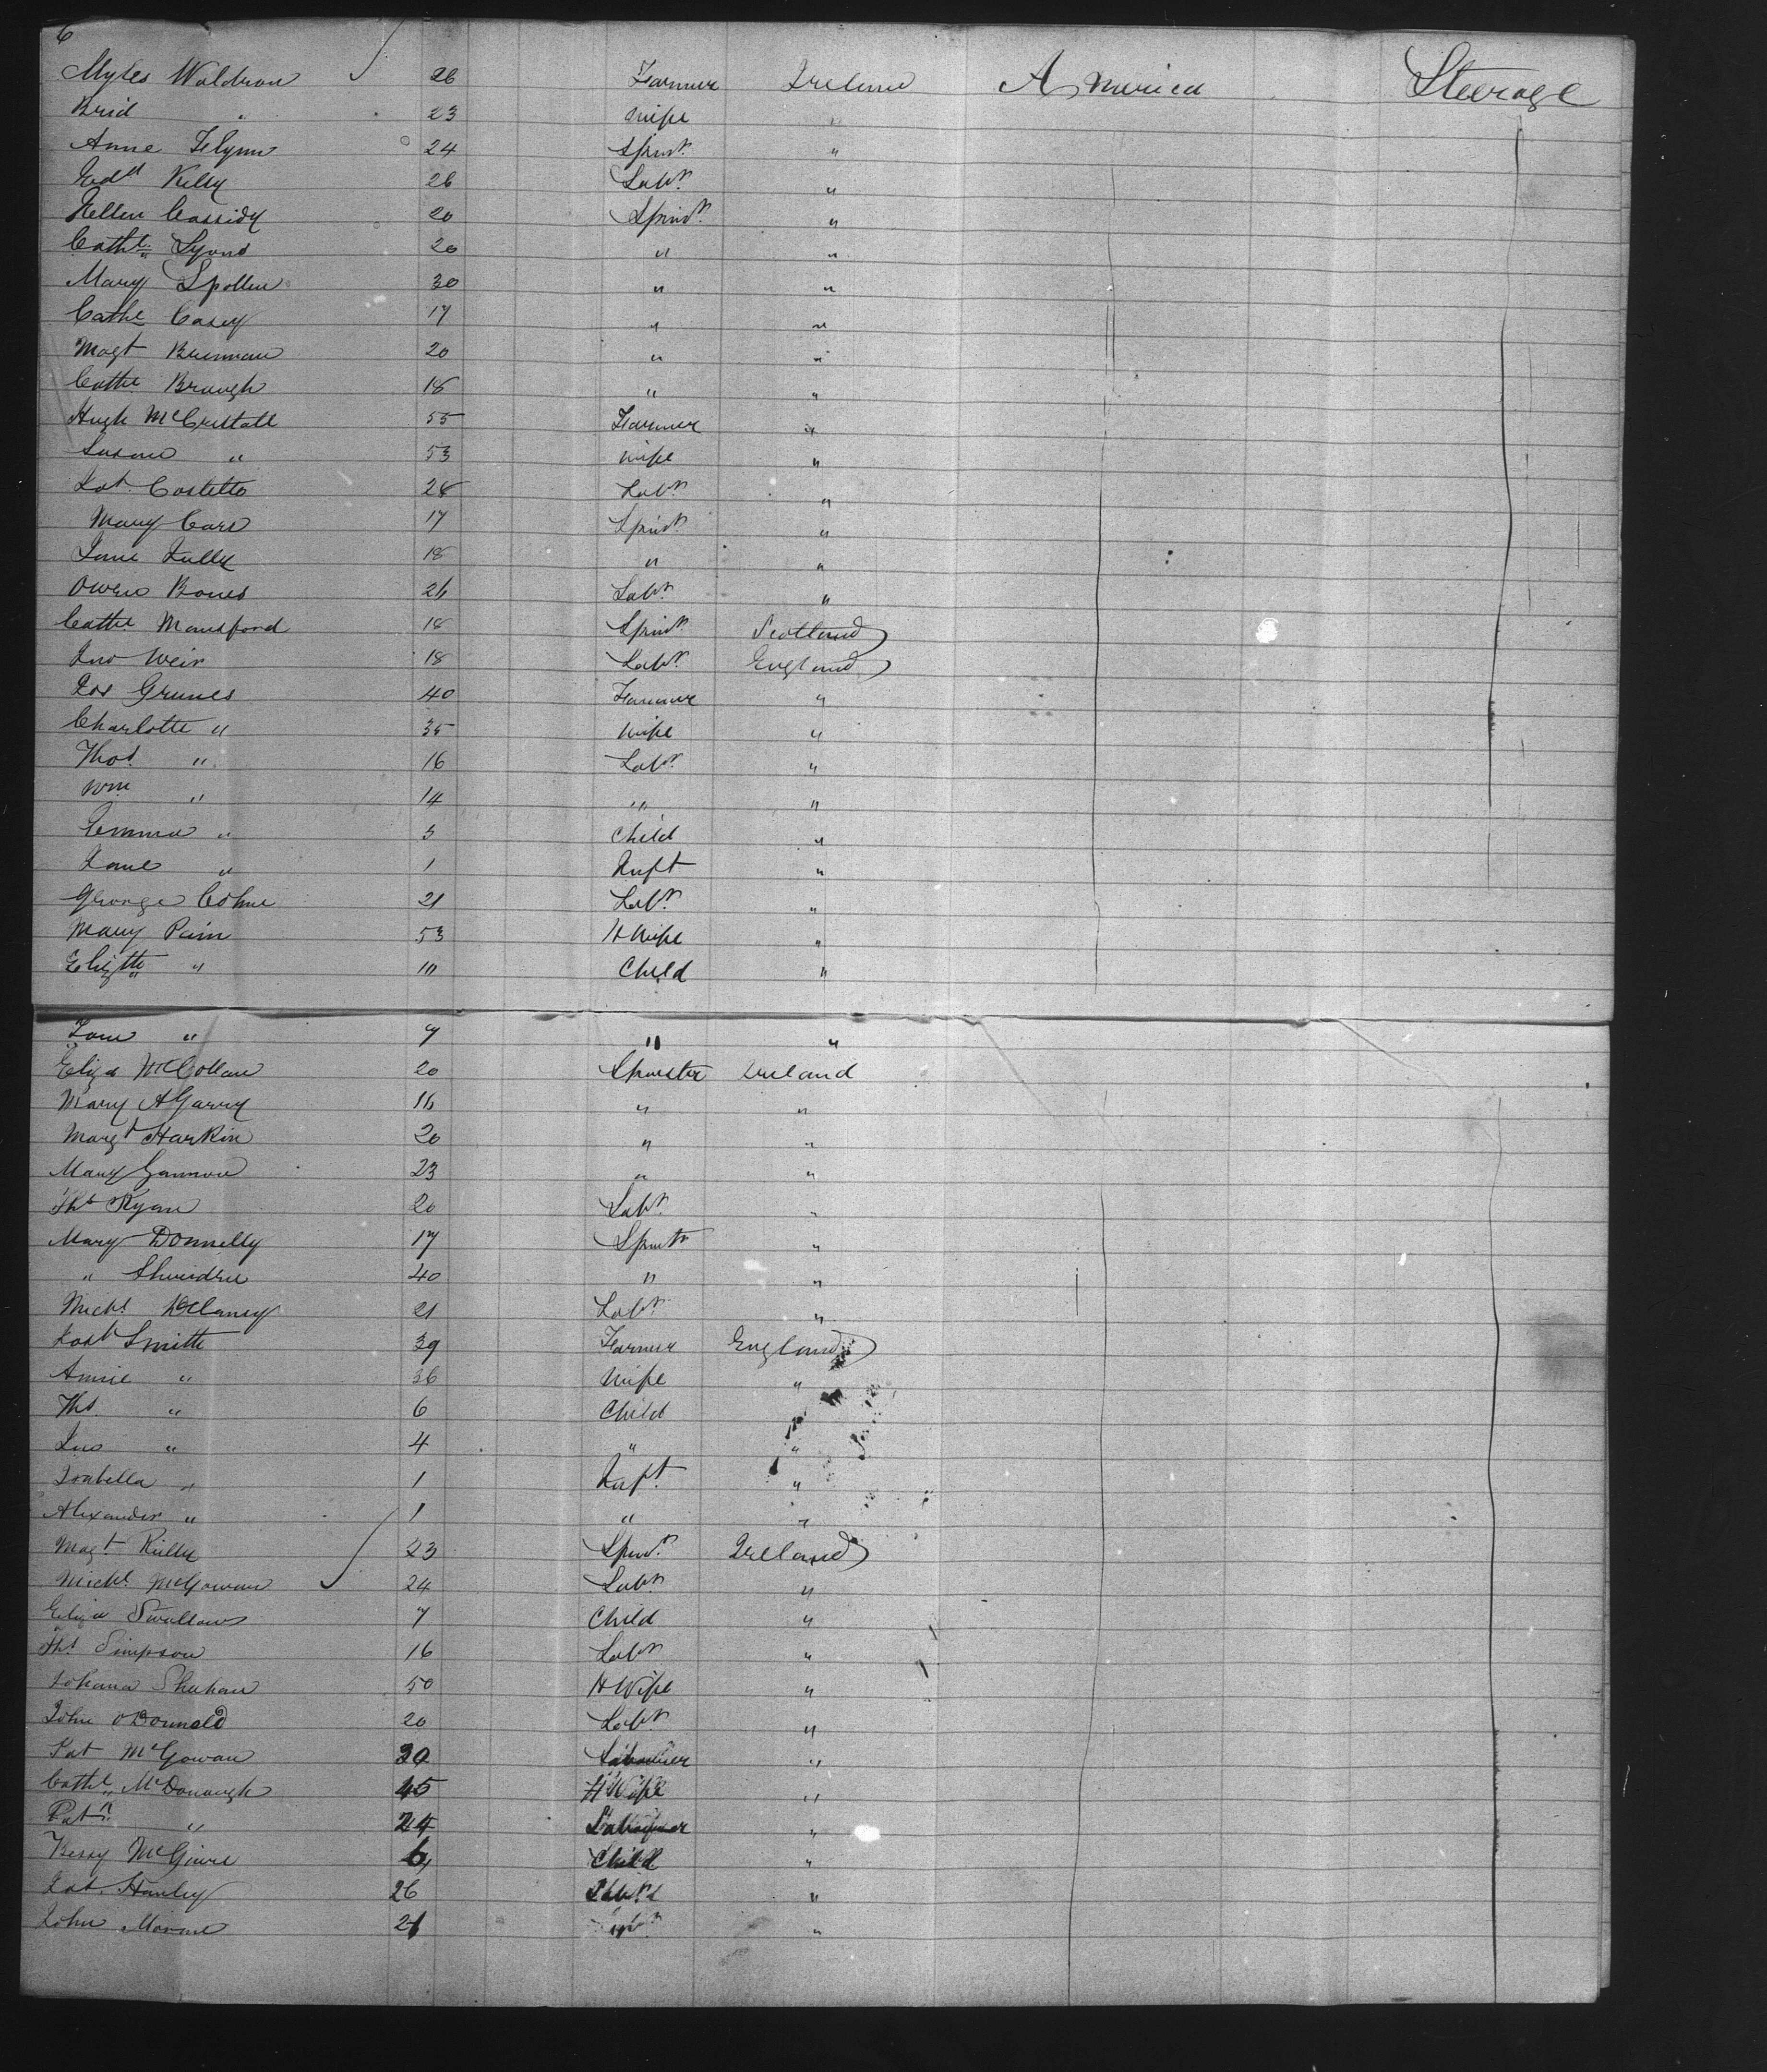 6
Myles Waldron 26 Farmer Ireland America Steerage
Brid " 23 Wife "
Anne Flynn 24 Spinr "
Edd Kelly 26 Labr "
Hellen Cassidy 20 Spinr "
Cathe Lyons 20 " "
Mary Spollen 30 " "
Cathe Casey 17 " "
Magt Brennan 20 " "
Cathe Brough 18 " "
Hugh McCristall 55 Farmer "
Susan " 53 Wife "
Pat Costello 28 Labr "
Mary Carr 17 Spinr "
Jane Tully 18 " "
Owen Bones 26 Labr "
Cathe Mansford 18 Spinr Scotland
Jno Weir 18 Labr England
Jos Grunes 40 Farmer "
Charlotte " 35 Wife "
Thos " 16 Labr "
Wm " 14 " "
Emma " 5 Child "
Jane " 1 Inft "
George Cohne 21 Labr "
Mary Pain 53 H Wife "
Elizth " 10 Child "
Jane " 7 " "
Eliza McCollan 20 Spinster Ireland
Mary A Garry 16 " "
Margt Harkin 20 " "
Mary Gannon 23 " "
Ths Ryan 20 Labr "
Mary Donnelly 17 Spinr "
" 40 " "
Michl Delaney 21 Labr "
Smith 39 Farmer England
Annie " 36 Wife "
Ths " 6 Child "
Jno " 4 " "
Isabella " 1 Inft "
Alexander " 1 " "
Magt Reilly 23 Spinr Ireland
Michl McGowan 24 Labr "
Eliza Swallows 7 Child "
Ths Simpson 16 Labr "
Johana Shehan 50 H Wife "
John O'Donnald 20 Labr "
Pat McGowan 30 Labourer "
Cathe McDonough 45 H Wife "
Patk " 24 Labourer "
Bessy McGinn 6 Child "
Pat Hanley 26 Labr "
John 21 " "